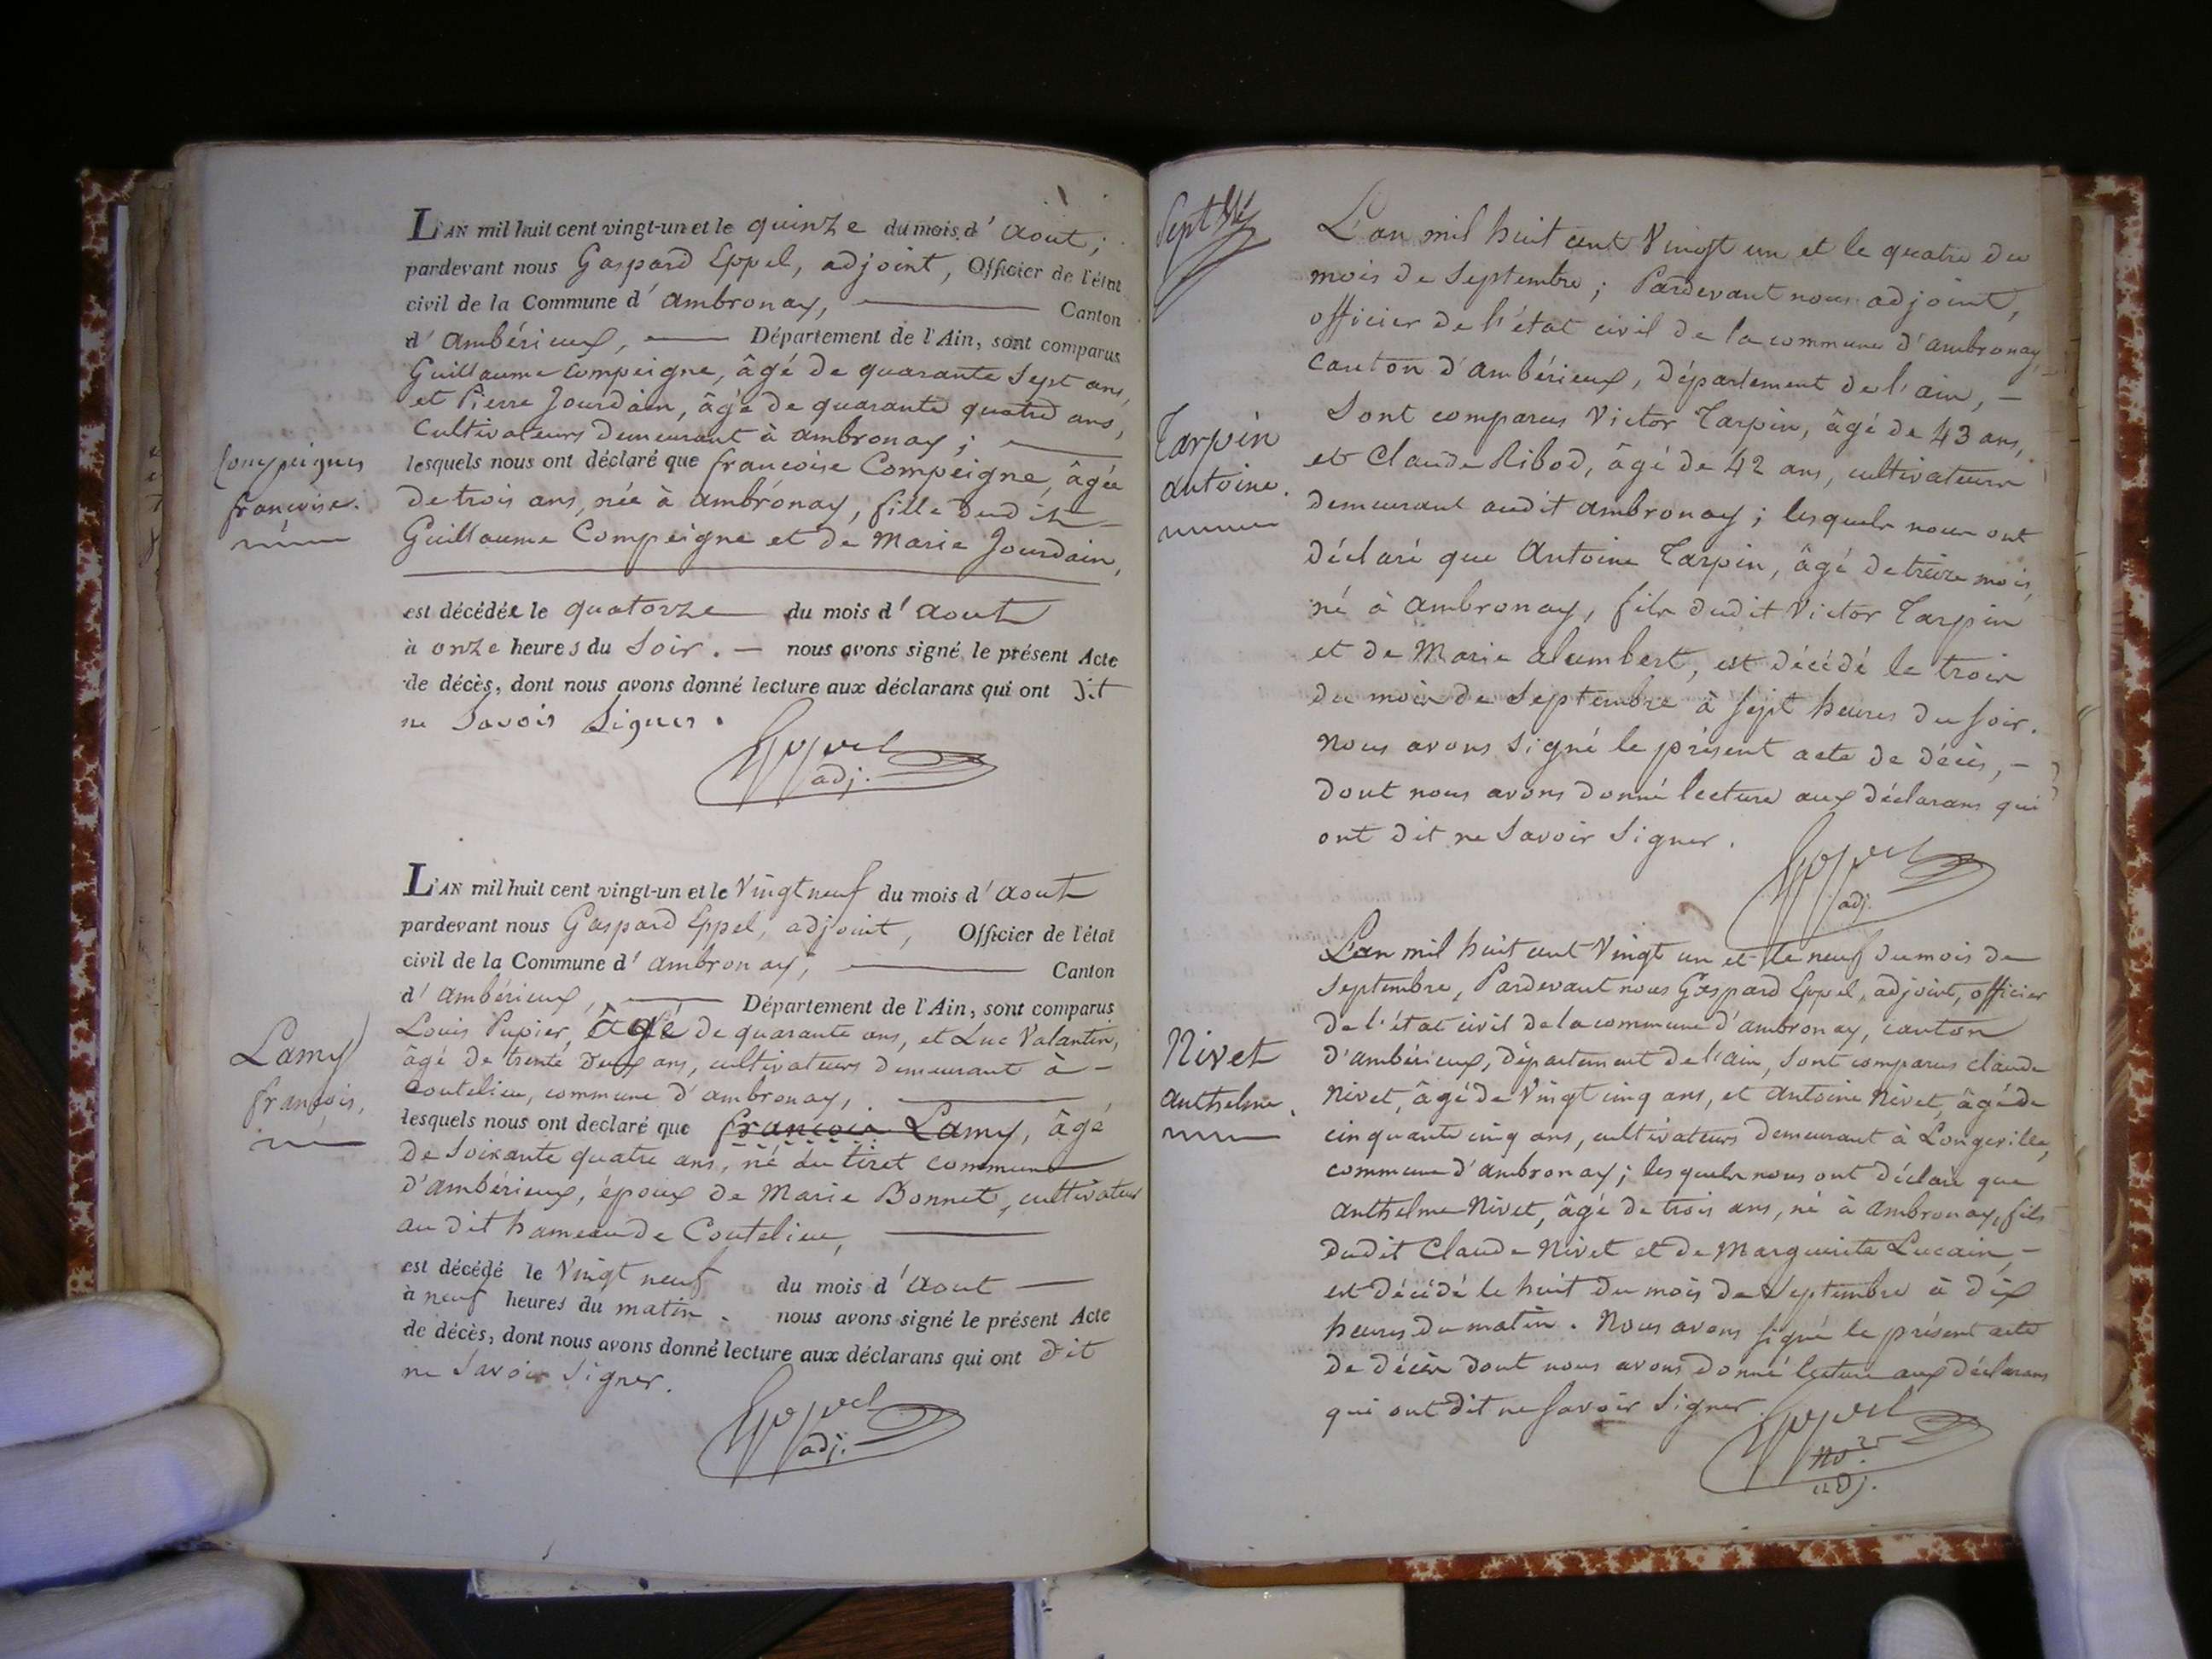 L'AN mil huit cent vingt-un et le quinze du mois d'aout;
pardevant nous Gaspard Eppel, adjoint, Officier de l'état
civil de la Commune d'ambronay, Canton
d'ambérieux, Département de l'Ain, sont comparus
Guillaume Compeigne, âgé de quarante sept ans,
et Pierre Jourdain, âgé de quarante quatre ans,
Cultivateurs demeurant à ambronay;
Compeignes
françoise.
lesquels nous ont déclaré que françoise Compeigne, âgée
de trois ans, née à ambronay, fille dudit
Guillaume Compeigne et de Marie Jourdain,
est décédée le quatorze du mois d'aout
à onze heures du Soir. — nous avons signé le présent Acte
de décès, dont nous avons donné lecture aux déclarans qui ont dit
ne Savoir Signer.
Eppel
adj.
L'AN mil huit cent vingt-un et le Vingt neuf du mois d'aout
pardevant nous Gaspard Eppel, adjoint, Officier de l'état
civil de la Commune d'ambronay, Canton
d'ambérieux, Département de l'Ain, sont comparus
Louis Pupier, âgé de quarante ans, et Luc Valantin,
âgé de trente deux ans, cultivateurs demeurant à -
Coutelieu, commune d'ambronay,
Lamy
françois,
lesquels nous ont declaré que françois Lamy, âgé
de soixante quatre ans, né au tiret commune
d'ambérieux, époux de Marie Bonnet, cultivateur
au dit hameau de Coutelieu,
est décédé le Vingt neuf du mois d'aout
à neuf heures du matin. nous avons signé le présent Acte
de décès, dont nous avons donné lecture aux déclarans qui ont dit
ne Savoir Signer.
Eppel
adj.
Sept.bre
L'an mil huit cent Vingt un et le quatre du
mois de Septembre; Pardevant nous adjoint,
officier de l'état civil de la commune d'ambronay,
canton d'ambérieux, département de l'ain, -
Sont comparus Victor Tarpin, âgé de 43 ans,
Tarpin
antoine.
et Claude Ribod, âgé de 42 ans, cultivateurs
demeurant audit ambronay; lesquels nous ont
déclaré que Antoine Tarpin, âgé de treize mois,
né à ambronay, fils dudit Victor Tarpin
et de Marie alumbert, est décédé le trois
du mois de Septembre à sept heures du soir.
Nous avons Signé le présent acte de décès, -
dont nous avons donné lecture aux déclarans qui
ont dit ne Savoir Signer.
Eppel
adj.
L'an mil huit cent Vingt un et le neuf du mois de
Septembre, Pardevant nous Gaspard Eppel, adjoint, officier
de l'état civil de la commune d'ambronay, canton
Nivet
anthelme.
d'ambérieux, département de l'ain, Sont comparus claude
Nivet, âgé de Vingt cinq ans, et Antoine Nivet, âgé de
cinquante cinq ans, cultivateurs demeurant à Longeville,
commune d'ambronay; lesquels nous ont déclaré que
anthelme Nivet, âgé de trois ans, né à Ambronay, fils
dudit Claude Nivet et de Marguerite Lucain, -
est décédé le huit du mois de Septembre à dix
heures du matin. Nous avons signé le présent acte
de décès dont nous avons donné lecture aux déclarans
qui ont dit ne savoir Signer.
Eppel
adj.